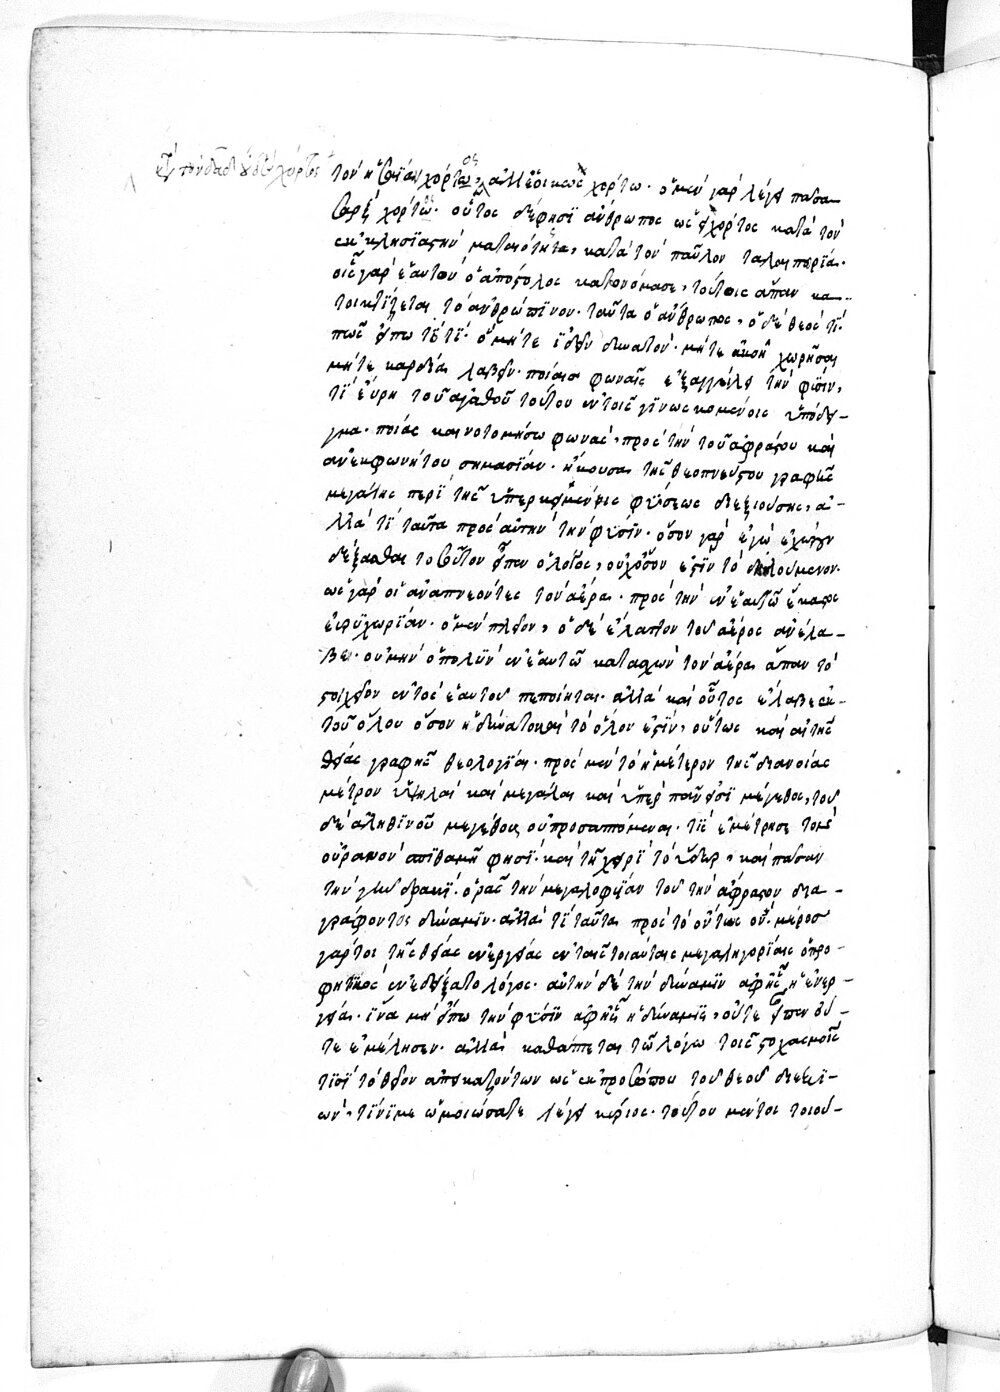 ἐπὶ τὸν δαδ οὐδὲ χόρτος
τὸν ἡσαΐαν χόρτος, ἀλλ' ἐοικὼς χόρτω· ὁ μὲν γὰρ λέγει πᾶσα
σὰρξ χόρτος· οὗτος δέ φησι ἄνθρωπος ὡσεὶ χόρτος κατὰ τὸν
ἐκκλησιαστὴν ματαιότητα, κατὰ τὸν παῦλον ταλαιπωρία·
οἷς γὰρ ἑαυτὸν ὁ ἀπόστολος κατονόμασε, τούτοις ἅπαν κα-
τοικτίζεται τὸ ἀνθρώπινον· ταῦτα ὁ ἄνθρωπος, ὁ δὲ θεὸς τί·
πῶς εἴπω τὸ τί· ὃ μήτε ἰδεῖν δυνατὸν· μήτε ἀκοῇ χωρῆσαι
μήτε καρδία λαβεῖν· ποίαισ φωναῖς ἐξαγγείλω τὴν φύσιν,
τί εὕρη τοῦ ἀγαθοῦ τούτου ἐν τοῖς γινωσκομένοις ὑπόδει-
γμα· ποίας καινοτομήσω φωνὰς, πρὸς τὴν τοῦ ἀφράστου καὶ
ἀνεκφωνήτου σημασίαν· ἤκουσα τῆς θεοπνεύστου γραφῆς
μεγάλης περὶ τῆς ὑπερκειμένης φύσεως διεξιούσης, ἀ-
λλὰ τί ταῦτα πρὸς αὐτὴν τὴν φύσιν· ὅσον γὰρ ἐγὼ ἐχώρουν
δέξασθαι τοσοῦτον εἶπεν ὁ λόγος, οὐχ ὅσον ἐστὶν τὸ δηλούμενον·
ὡς γὰρ οἱ ἀναπνέοντες τὸν ἀέρα· πρὸς τὴν ἐν ἑαυτῶ ἕκαστος
εὐρυχωρίαν· ὁ μὲν πλεῖον, ὁ δὲ ἔλαττον τοῦ ἀέρος ἀνέλα-
βε· οὐ μὴν ὁ πολὺν ἐν ἑαυτῶ κατασχὼν τὸν ἀέρα ἅπαν τὸ
στοιχεῖον ἐντὸς ἑαυτοῦ πεποίηται· ἀλλὰ καὶ οὗτος ἔλαβεν ἐκ-
τοῦ ὅλου ὅσον ἠδυνατο καὶ τὸ ὅλον ἐστὶν, οὕτως καὶ αἱ τῆς
θείας γραφῆς θεολογίαι· πρὸς μὲν τὸ ἡμέτερον τῆς διανοίας
μέτρον ὑψηλαὶ καὶ μεγάλαι καὶ ὑπὲρ πᾶν εἰσὶ μέγεθος, τοῦ
δὲ ἀληθινοῦ μεγέθους οὐ προσαπτόμεναι· τίς ἐμέτρησε τὸν
οὐρανὸν σπιθαμῆ φησί· καὶ τῆ χειρὶ τὸ ὕδωρ, καὶ πᾶσαν
τὴν γῆν δρακί· ὁρᾶς τὴν μεγαλοφυΐαν τοῦ τὴν ἄφραστον δια-
γράφοντος δύναμιν· ἀλλὰ τί ταῦτα πρὸς τὸ ὄντως ὄν· μέρος
γάρ τοι τῆς θείας ἐνεργείας ἐν ταῖς τοιαύταις μεγαληγορίαις ὁ προ-
φητικὸς ἐνεδείξατο λόγος· αὐτὴν δὲ τὴν δύναμιν ἀφ' ἧς ἡ ἐνέρ-
γεια· ἵνα μὴ εἴπω τὴν φύσιν ἀφ' ἧς ἡ δύναμις, οὔτε εἶπεν οὔ-
τε ἐμέλησεν· ἀλλὰ καθάπτεται τῶ λόγω τοῖς στοχασμοῖς
τισὶ τὸ θεῖον ἀπεικαζόντων ὡς ἐκ προσώπου τοῦ θεοῦ διεξι-
ών, τίνι με ὡμοιώσατε λέγει κύριος· τούτου μέντοι τοιού-